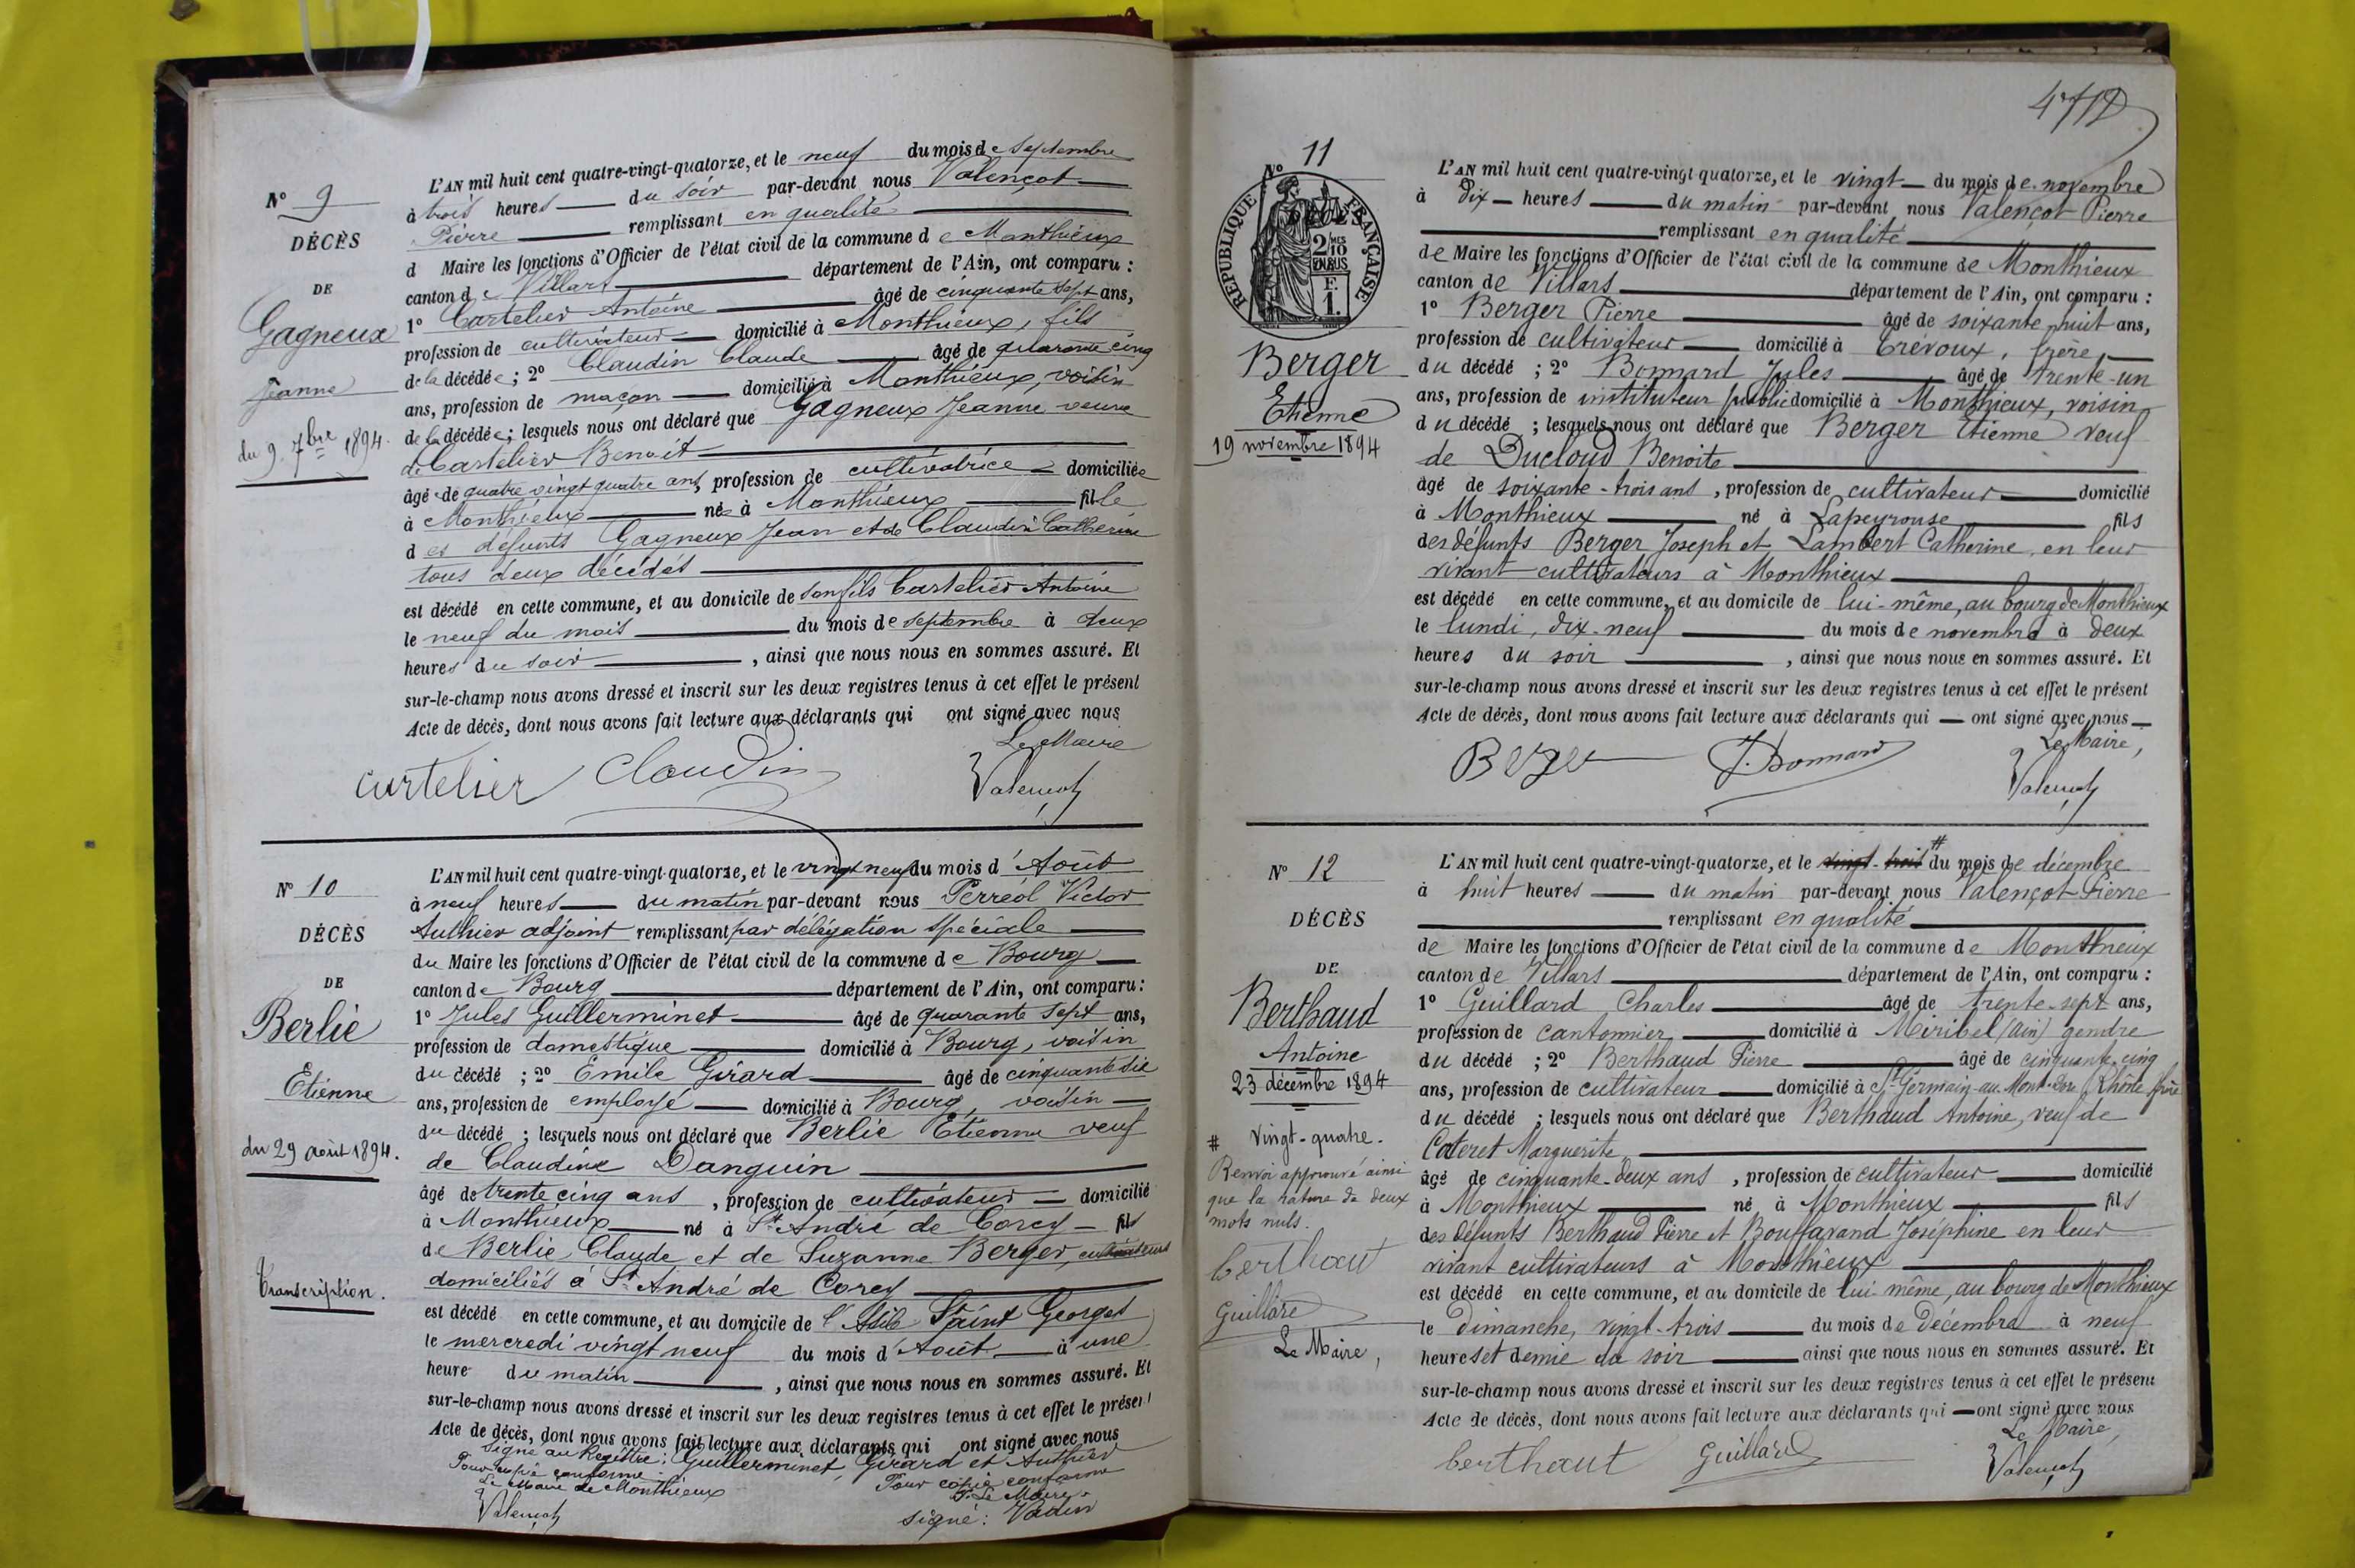 N° 9
DÉCÈS
DE
Gagneux
Jeanne
du 9. 7bre 1894.
L'AN mil huit cent quatre-vingt-quatorze, et le neuf du mois de Septembre
à trois heures du soir par-devant nous Valençot
Pierre remplissant en qualité
d Maire les fonctions d'Officier de l'état civil de la commune de Monthieux
canton de Villars département de l'Ain, ont comparu :
1° Cartelier Antoine âgé de cinquante sept ans,
profession de cultivateur domicilié à Monthieux, fils
de la décédée ; 2° Claudin Claude âgé de quarante cinq
ans, profession de maçon domicilié à Monthieux, voisin
de la décédée ; lesquels nous ont déclaré que Gagneux Jeanne veuve
de Cartelier Benoit
âgé de quatre vingt quatre ans, profession de cultivatrice domiciliée
à Monthieux née à Monthieux fille
des défunts Gagneux Jean et de Claudin Catherine
tous deux décédés
est décédé en cette commune, et au domicile de son fils Cartelier Antoine
le neuf du mois du mois de septembre à deux
heures du soir , ainsi que nous nous en sommes assuré. Et
sur-le-champ nous avons dressé et inscrit sur les deux registres tenus à cet effet le présent
Acte de décès, dont nous avons fait lecture aux déclarants qui ont signé avec nous
Le Maire
curtelier Claudin Valençot
N° 10
DÉCÈS
DE
Berlie
Etienne
du 29 août 1894.
Transcription.
L'AN mil huit cent quatre-vingt-quatorze, et le vingt neuf du mois d'Août
à neuf heures du matin par-devant nous Perreol Victor
Authier adjoint remplissant par délégation spéciale
du Maire les fonctions d'Officier de l'état civil de la commune de Bourg
canton de Bourg département de l'Ain, ont comparu :
1° Jules Guillerminet âgé de quarante sept ans,
profession de domestique domicilié à Bourg, voisin
du décédé ; 2° Emile Girard âgé de cinquante six
ans, profession de employé domicilié à Bourg, voisin
du décédé ; lesquels nous ont déclaré que Berlie Etienne veuf
de Claudine Danguin
âgé de trente cinq ans , profession de cultivateur domicilié
à Monthieux né à St André de Corcy fils
de Berlie Claude et de Suzanne Berger, cultivateurs
domiciliés à St André de Corcy
est décédé en cette commune, et au domicile de l'Asile Saint Georges
le mercredi vingt neuf du mois d'Août à une
heure du matin , ainsi que nous nous en sommes assuré. Et
sur-le-champ nous avons dressé et inscrit sur les deux registres tenus à cet effet le présent
Acte de décès, dont nous avons fait lecture aux déclarants qui ont signé avec nous
Signé au Registre : Guillerminet, Girard et Authier
Pour copie conforme Pour copie conforme
Le Maire de Monthieux Le Maire
Valençot signé :
N° 11
RÉPUBLIQUE FRANÇAISE
2/10 EN SUS
F. 1.
Berger
Etienne
19 novembre 1894
L'AN mil huit cent quatre-vingt quatorze, et le vingt du mois de novembre
à Dix heures du matin par-devant nous Valençot Pierre
remplissant en qualité
de Maire les fonctions d'Officier de l'état civil de la commune de Monthieux
canton de Villars département de l'Ain, ont comparu :
1° Berger Pierre âgé de soixante huit ans,
profession de cultivateur domicilié à Trévoux, frère
du décédé ; 2° Bonnard Jules âgé de trente-un
ans, profession de instituteur public domicilié à Monthieux, voisin
du décédé ; lesquels nous ont déclaré que Berger Etienne veuf
de Ducloud Benoite
âgé de soixante-trois ans , profession de cultivateur domicilié
à Monthieux né à Lapeyrouse fils
des défunts Berger Joseph et Lambert Catherine, en leur
vivant cultivateurs à Monthieux
est décédé en cette commune, et au domicile de lui-même, au bourg de Monthieux
le lundi, dix-neuf du mois de novembre à Deux
heures du soir , ainsi que nous nous en sommes assuré. Et
sur-le-champ nous avons dressé et inscrit sur les deux registres tenus à cet effet le présent
Acte de décès, dont nous avons fait lecture aux déclarants qui ont signé avec nous
Le Maire,
Berger J. Bonnard Valençot
N° 12
DÉCÈS
DE
Berthaud
Antoine
23 décembre 1894
# Vingt-quatre.
Renvoi approuvé ainsi
que la rature de deux
mots nuls.
berthaut
Guillard
Le Maire,
L'AN mil huit cent quatre-vingt-quatorze, et le vingt-trois # du mois de décembre
à huit heures du matin par-devant nous Valençot Pierre
remplissant en qualité
de Maire les fonctions d'Officier de l'état civil de la commune de Monthieux
canton de Villars département de l'Ain, ont comparu :
1° Guillard Charles âgé de trente-sept ans,
profession de cantonnier domicilié à Miribel (Ain) gendre
du décédé ; 2° Berthaud Pierre âgé de cinquante cinq
ans, profession de cultivateur domicilié à St Germain-au-Mont-d'or (Rhône) frère
du décédé ; lesquels nous ont déclaré que Berthaud Antoine, veuf de
Cateret Marguerite
âgé de cinquante-deux ans , profession de cultivateur domicilié
à Monthieux né à Monthieux fils
des défunts Berthaud Pierre et Bouffarand Joséphine en leur
vivant cultivateurs à Monthieux
est décédé en cette commune, et au domicile de lui-même, au bourg de Monthieux
le Dimanche, vingt-trois du mois de Décembre à neuf
heures et demie du soir ainsi que nous nous en sommes assuré. Et
sur-le-champ nous avons dressé et inscrit sur les deux registres tenus à cet effet le présent
Acte de décès, dont nous avons fait lecture aux déclarants qui ont signé avec nous
Le Maire,
berthaut Guillard Valençot